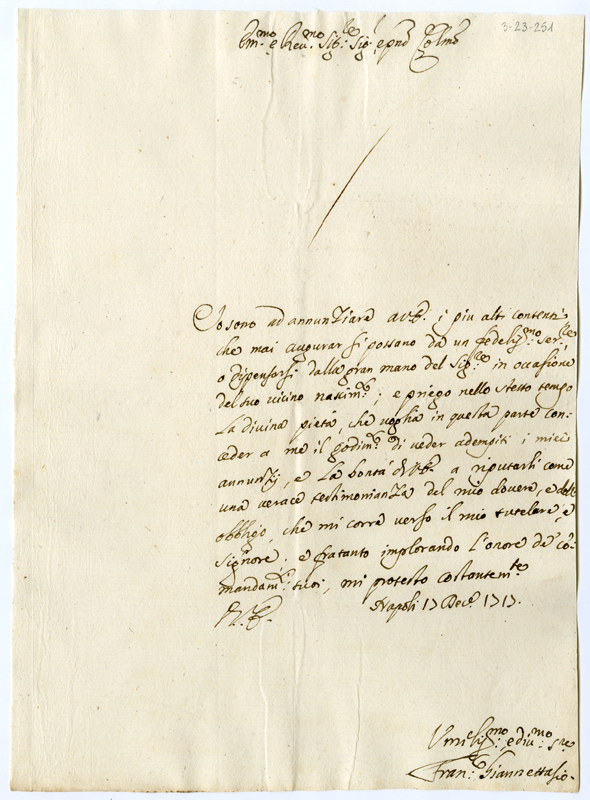 3-23-251
Em.mo e Rev.mo Sig.re Sig.r e pnē Colmō
Io sono ad annunziare a V.E. i piu alti contenti
che mai augurar si possono da un fedeliss.mo ser.re
o dispensarsi dalla gran mano del Sig.re in occasione
del suo vicino nascim.to; e priego nello stesso tempo
La divina pietà, che voglia in questa parte con-
ceder a me il godim.to di veder adempiti i miei
annunzij, e La bontà di V.E. a riputarli come
una verace testimonianza del mio dovere, e delle
obbligo, che mi corre verso il mio tutelare, e
Signore. e fratanto implorando L'onore de' co-
mandam.ti suoi, mi protesto costantem.te
D.V.E. Napoli 17 Dec.e 1717.
Umiliss.mo e div.mo S.re
Fran.co Giannettasio.